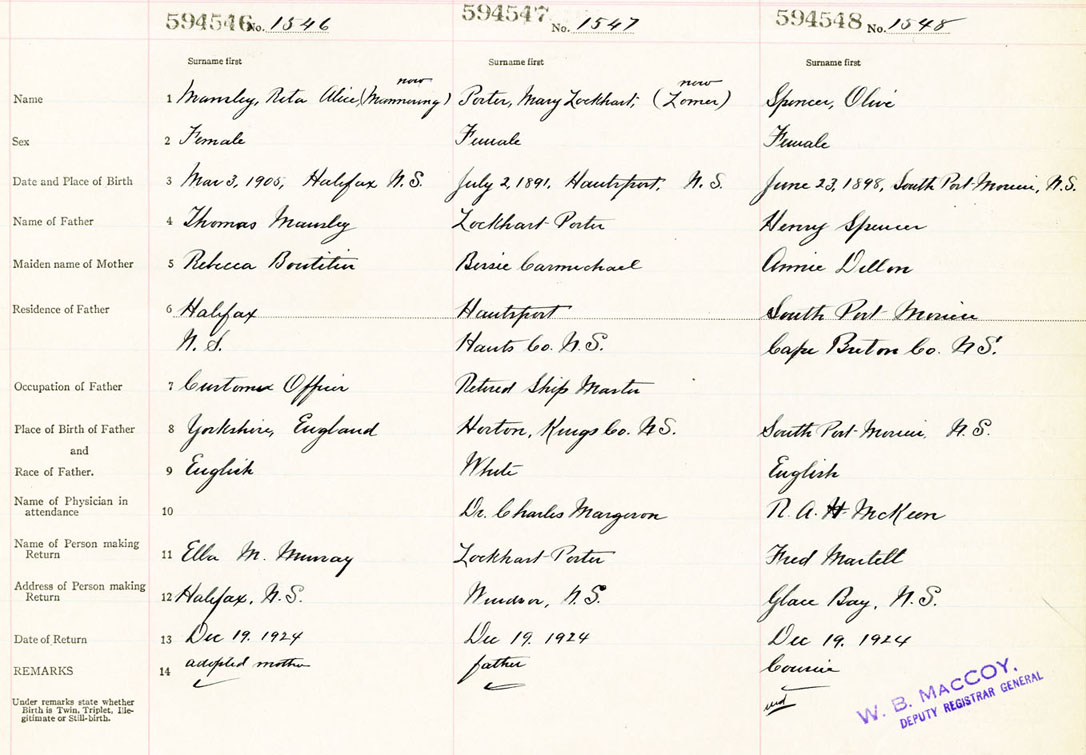 594546 No. 1546 594547 No. 1547 594548 No. 1548
Surname first Surname first Surname first
now now
Name 1 Mansley, Rita Alice (Mannering) Porter, Mary Lockhart, (Lomer) Spencer, Olive
Sex 2 Female Female Female
Date and Place of Birth 3 Mar 3, 1905, Halifax N.S. July 2, 1891, Hantsport, N.S. June 23, 1898, South Port Morien, N.S.
Name of Father 4 Thomas Mansley Lockhart Porter Henry Spencer
Maiden name of Mother 5 Rebecca Boutilier Bessie Carmichael Annie Dillon
Residence of Father 6 Halifax Hantsport South Port Morien
N.S. Hants Co. N.S. Cape Breton Co. N.S.
Occupation of Father 7 Customs Officer Retired Ship Master
Place of Birth of Father 8 Yorkshire, England Horton, Kings Co. N.S. South Port Morien, N.S.
and
Race of Father. 9 English White English
Name of Physician in
attendance 10 Dr. Charles Margeson R. A. H. McKeen
Name of Person making
Return 11 Ella M. Murray Lockhart Porter Fred Martell
Address of Person making
Return 12 Halifax, N.S. Windsor, N.S. Glace Bay, N.S.
Date of Return 13 Dec 19. 1924 Dec 19. 1924 Dec 19. 1924
REMARKS 14 adopted mother father Cousin
Under remarks state whether
Birth is Twin, Triplet, Ille-
gitimate or Still-birth.
W. B. MACCOY,
DEPUTY REGISTRAR GENERAL